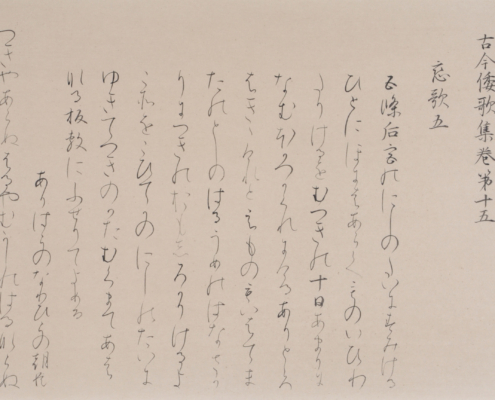 古今倭歌集巻第十五
恋歌五
五條后宮のにしのたいにすみける
ひとにほいにはあらてものいひわ
たりけるをむつきの十日あまりに
なむほかへかくれにけるありところ
はきゝけれとえものもいはてま
たのとしのはるうめのはなさか
りにつきのおもしろかりけるよ
こそをこひてかのにしのたいに
ゆきてつきのかたむくまてあは
らなる板敷にふせりてよめる
ありはらのなりひらの朝臣
つきやあらぬはるやむかしのはるならぬ